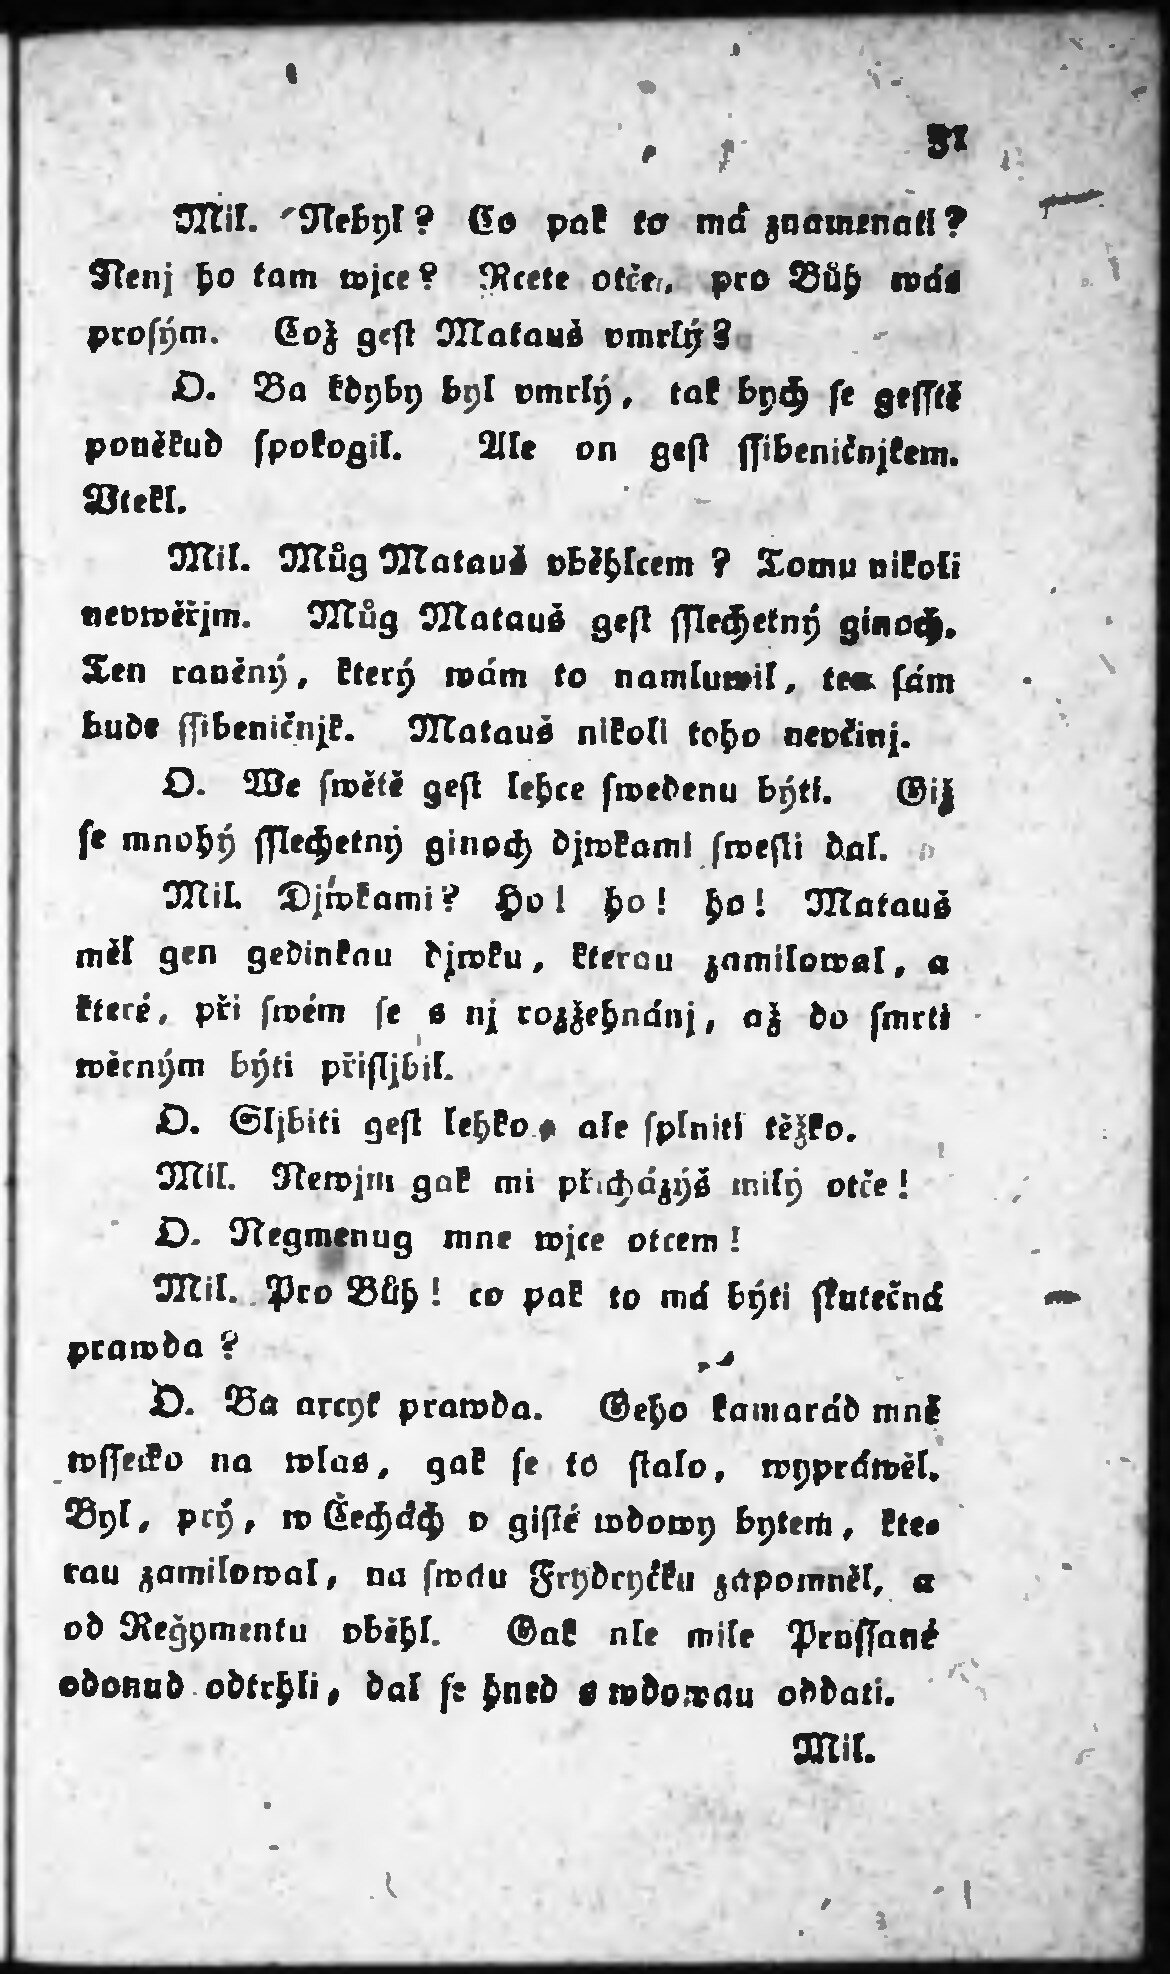 31
Mil. Nebyl? Co pak to má znamenati?
Nenj ho tam wjce? Rcete otče, pro Bůh wás
proſým. Což geſt Matauš vmrlý?
O. Ba kdyby byl vmrlý, tak bych ſe geſſtě
poněkud ſpokogil. Ale on geſt ſſibeničnjkem.
Vtekl.
Mil. Můg Matauš vběhlcem? Tomu nikoli
nevwěřjm. Můg Matauš geſt ſſlechetný ginoch.
Ten raněný, který wám to namluwil, ten ſám
bude ſſibeničnjk. Matauš nikoli toho nevčinj.
O. We ſwětě geſt lehce ſwedenu býti. Giž
ſe mnohý ſſlechetný ginoch djwkami ſweſti dal.
Mil. Djwkami? Ho! ho! ho! Matauš
měl gen gedinkau djwku, kterau zamilowal, a
které, při ſwém ſe s nj rozžehnánj, až do ſmrti
wěrným býti přiſljbil.
O. Sljbiti geſt lehko, ale ſplniti těžko.
Mil. Newjm gak mi přicházýš milý otče!
O. Negmenug mne wjce otcem!
Mil. Pro Bůh! co pak to má býti ſkutečná
prawda?
O. Ba arcyk prawda. Geho kamarád mně
wſſecko na wlas, gak ſe to ſtalo, wypráwěl.
Byl, prý, w Čechách v giſté wdowy bytem, kte-
rau zamilowal, na ſwau Frydryčku zapomněl, a
od Reğymentu vběhl. Gak nle mile Pruſſané
odonud odtrhli, dal ſe hned s wdowau oddati.
Mil.